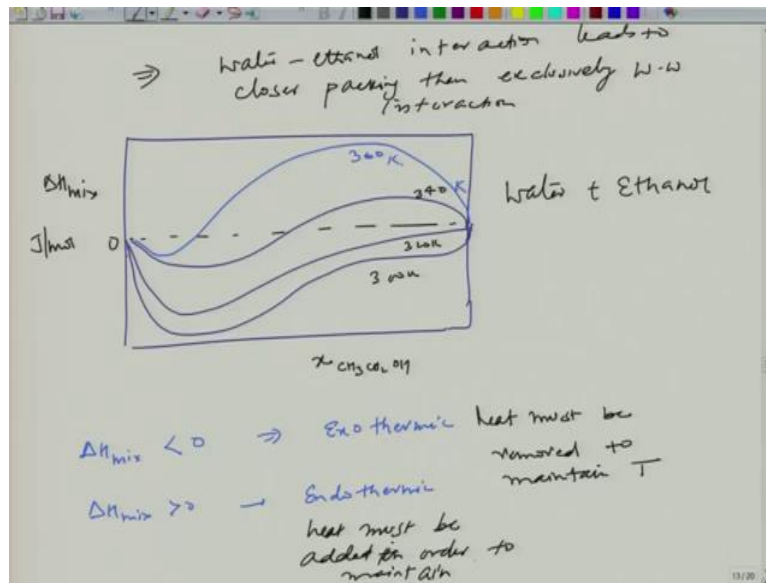 ⇒ Water - ethanol interaction leads to
closer packing than exclusively W-W
interaction
ΔHmix
J/mol
0
360 K
340 K
320K
300K
Water + Ethanol
x CH3CH2OH
ΔHmix < 0 ⇒ Exothermic heat must be
removed to
maintain T
ΔHmix >0 → Endothermic
heat must be
added in order to
maintain
13/20